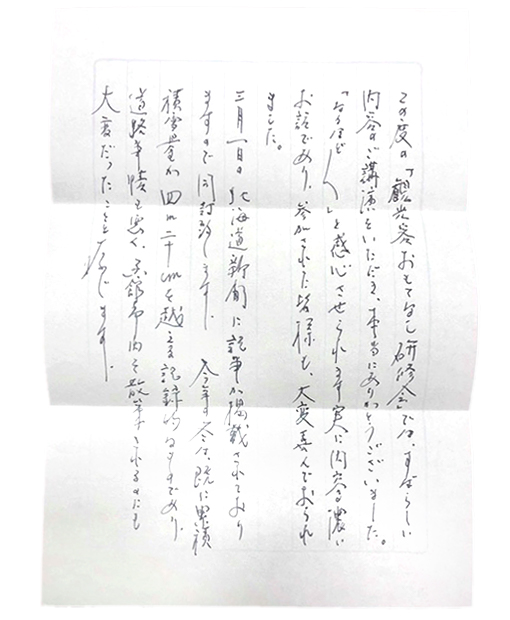 この度の「観光客おもてなし研修会」では、すばらしい
内容のご講演をいただき、本当にありがとうございました。
「なるほど〱」と感心させられます実に内容の濃い
お話であり、参加された皆様も、大変喜んでおられ
ました。
三月一日の北海道新聞に記事が掲載されており
ますので同封致します。今年の冬は、既に累積
積雪量が四m二十cmを越える記録的なものであり、
道路事情も悪く、函館市内を散策されるのにも
大変だったことと存じます。